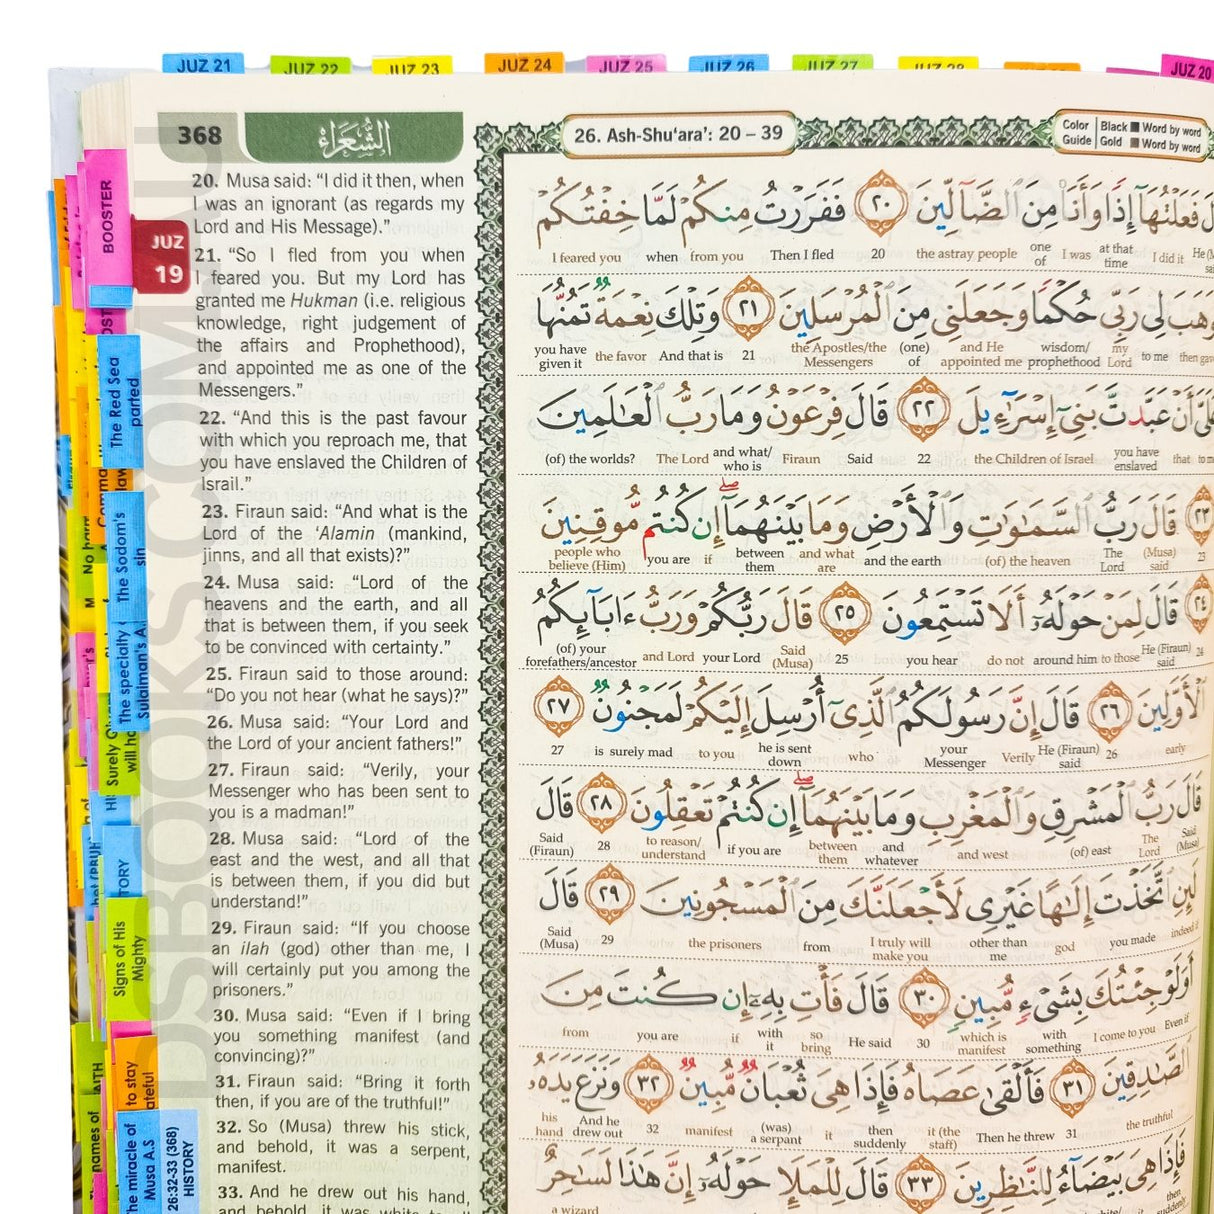 JUZ 21
JUZ 22
JUZ 23
JUZ 24
JUZ 25
JUZ 26
JUZ 27
JUZ 28
JUZ 20
368
الشُّعَرَاءُ
26. Ash-Shu‘ara’: 20 – 39
Color Guide
Black Word by word
Gold Word by word
BOOSTER
JUZ
19
The Red Sea
parted
The Sodom's
sin
The specialty
Sulaiman's A.
Surely
will
TORY
Signs of His
Mighty
to stay
names of
The miracle of
Musa A.S
26:32-33 (368)
HISTORY
20. Musa said: “I did it then, when
I was an ignorant (as regards my
Lord and His Message).”
21. “So I fled from you when
I feared you. But my Lord has
granted me Hukman (i.e. religious
knowledge, right judgement of
the affairs and Prophethood),
and appointed me as one of the
Messengers.”
22. “And this is the past favour
with which you reproach me, that
you have enslaved the Children of
Israil.”
23. Firaun said: “And what is the
Lord of the ‘Alamin (mankind,
jinns, and all that exists)?”
24. Musa said: “Lord of the
heavens and the earth, and all
that is between them, if you seek
to be convinced with certainty.”
25. Firaun said to those around:
“Do you not hear (what he says)?”
26. Musa said: “Your Lord and
the Lord of your ancient fathers!”
27. Firaun said: “Verily, your
Messenger who has been sent to
you is a madman!”
28. Musa said: “Lord of the
east and the west, and all that
is between them, if you did but
understand!”
29. Firaun said: “If you choose
an ilah (god) other than me, I
will certainly put you among the
prisoners.”
30. Musa said: “Even if I bring
you something manifest (and
convincing)?”
31. Firaun said: “Bring it forth
then, if you are of the truthful!”
32. So (Musa) threw his stick,
and behold, it was a serpent,
manifest.
33. And he drew out his hand,
and behold, it was white to
فَعَلْتُهَآ إِذًا وَأَنَا۠ مِنَ ٱلضَّآلِّينَ ٢٠ فَفَرَرْتُ مِنكُمْ لَمَّا خِفْتُكُمْ
I feared you when from you Then I fled 20 the astray people one of I was at that time I did it
فَوَهَبَ لِى رَبِّى حُكْمًا وَجَعَلَنِى مِنَ ٱلْمُرْسَلِينَ ٢١ وَتِلْكَ نِعْمَةٌ تَمُنُّهَا
you have given it the favor And that is 21 the Apostles/the Messengers (one) of and He appointed me wisdom/ prophethood my Lord to me then gave
عَلَىَّ أَنْ عَبَّدتَّ بَنِىٓ إِسْرَٰٓءِيلَ ٢٢ قَالَ فِرْعَوْنُ وَمَا رَبُّ ٱلْعَـٰلَمِينَ
(of) the worlds? The Lord and what/ who is Firaun Said 22 the Children of Israel you have enslaved that to me
٢٣ قَالَ رَبُّ ٱلسَّمَـٰوَٰتِ وَٱلْأَرْضِ وَمَا بَيْنَهُمَآ إِن كُنتُم مُّوقِنِينَ
people who believe (Him) you are if between them and what are and the earth (of) the heaven The Lord (Musa) said 23
٢٤ قَالَ لِمَنْ حَوْلَهُۥٓ أَلَا تَسْتَمِعُونَ ٢٥ قَالَ رَبُّكُمْ وَرَبُّ ءَابَآئِكُمُ
(of) your forefathers/ancestor and Lord your Lord Said (Musa) 25 you hear do not around him to those He (Firaun) said 24
ٱلْأَوَّلِينَ ٢٦ قَالَ إِنَّ رَسُولَكُمُ ٱلَّذِىٓ أُرْسِلَ إِلَيْكُمْ لَمَجْنُونٌ ٢٧
27 is surely mad to you he is sent down who your Messenger Verily He (Firaun) said 26 early
قَالَ رَبُّ ٱلْمَشْرِقِ وَٱلْمَغْرِبِ وَمَا بَيْنَهُمَآ إِن كُنتُمْ تَعْقِلُونَ ٢٨ قَالَ
Said (Firaun) 28 to reason/ understand if you are between them and whatever and west (of) east The Lord Said (Musa)
لَئِنِ ٱتَّخَذْتَ إِلَـٰهًا غَيْرِى لَأَجْعَلَنَّكَ مِنَ ٱلْمَسْجُونِينَ ٢٩ قَالَ
Said (Musa) 29 the prisoners from I truly will make you other than me god you made indeed if
أَوَلَوْ جِئْتُكَ بِشَىْءٍ مُّبِينٍ ٣٠ قَالَ فَأْتِ بِهِۦٓ إِن كُنتَ مِنَ
from you are if with it so bring He said 30 which is manifest with something I come to you Even if
ٱلصَّـٰدِقِينَ ٣١ فَأَلْقَىٰ عَصَاهُ فَإِذَا هِىَ ثُعْبَانٌ مُّبِينٌ ٣٢ وَنَزَعَ يَدَهُۥ
his hand And he drew out 32 manifest (was) a serpent it then suddenly it (the staff) Then he threw 31 the truthful
فَإِذَا هِىَ بَيْضَآءُ لِلنَّـٰظِرِينَ ٣٣ قَالَ لِلْمَلَإِ حَوْلَهُۥٓ إِنَّ هَـٰذَا لَسَـٰحِرٌ
a wizard then suddenly
DSBOOKS.COM